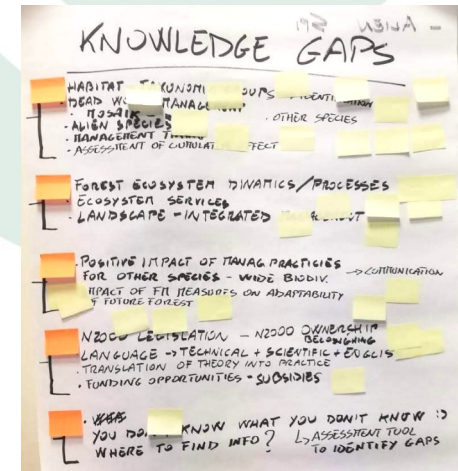 KNOWLEDGE GAPS
HABITAT
DEAD
- ALIEN SPECIES
· OTHER SPECIES
· MANAGEMENT
- ASSESSMENT OF
FOREST ECOSYSTEM DINAMICS/PROCESSES
· ECOSYSTEM SERVICES
· LANDSCAPE - INTEGRATED
· POSITIVE IMPACT OF MANAG. PRACTICIES
FOR OTHER SPECIES - WIDE BIODIV. → COMMUNICATION
IMPACT OF FM MEASURES ON ADAPTABILITY
FUTURE FOREST
N2000 LEGISLATION - N2000 OWNERSHIP
BELONGHING
LANGUAGE → TECHNICAL + SCIENTIFIC + ENGLIS
· TRANSLATION OF THEORY INTO PRACTICE
· FUNDING OPPORTUNITIES - SUBSIDIES
YOU KNOW WHAT YOU DON'T KNOW :)
WHERE TO FIND INFO? ↳ ASSESSMENT TOOL
TO IDENTIFY GAPS